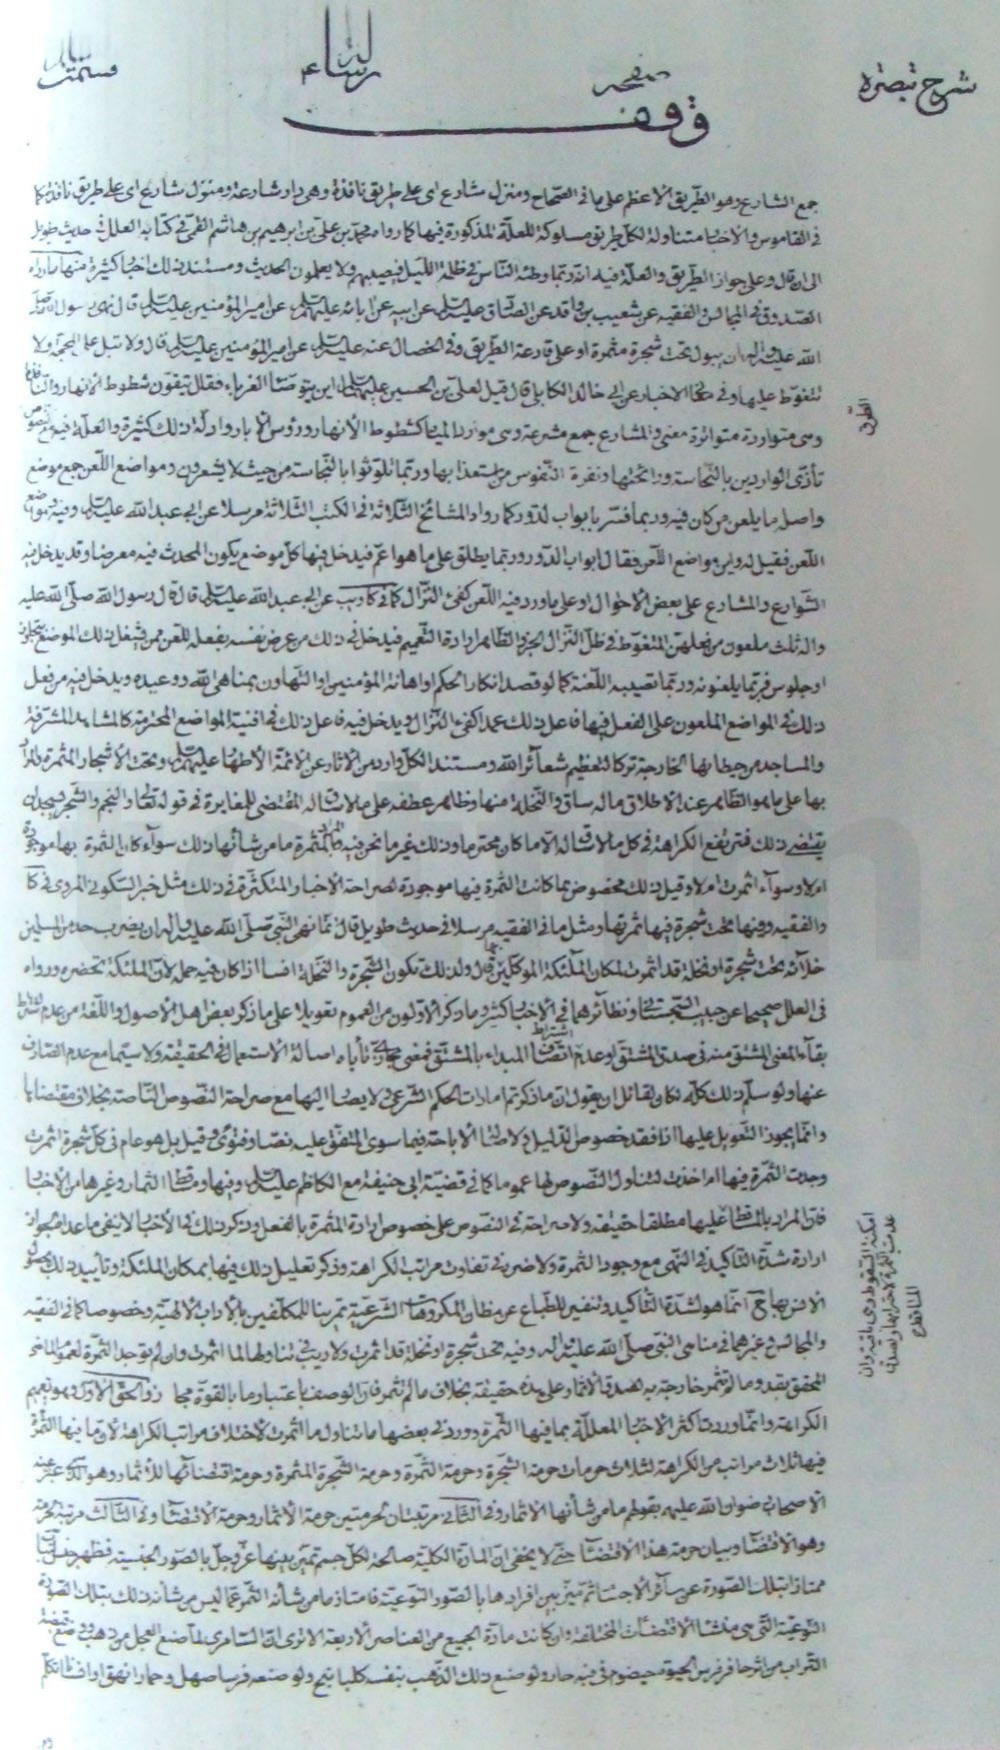 شرح تبصره
صفحه
رسالة
قسمت
وقف
جمع الشارع وهو الطريق الاعظم على ما في الصحاح ومنزل شارع اى على طريق نافذة وهى دار شارعة ومنزل شارع اى على طريق نافذة كما
في القاموس والاخبار متناولة لكل طريق مسلوكة للعلة المذكورة فيها كما رواه محمد بن على بن ابرهيم بن هاشم القمى في كتابه العلل في حديث طويل
الى ان قال وعلى جواز الطريق والعلة فيه انه ربما وطئه الناس في ظلمة الليل فيصيبهم ولا يعلمون الحديث ومستند ذلك اخبار كثيرة منها ما رواه
الصدوق في المجالس والفقيه عن شعيب بن واقد عن الصادق عليه السلام عن ابيه عن ابائه عليهم السلام عن امير المؤمنين عليه السلام قال نهى رسول الله صلى
الله عليه واله ان يبول تحت شجرة مثمرة او على قارعة الطريق وفي الخصال عنه عليه السلام عن امير المؤمنين عليه السلام قال ولا تبل على المحجة ولا
تتغوط عليها وفي الاخبار عن ابى خالد الكابلى قال قيل لعلى بن الحسين عليهما السلام اين يتوضأ الغرباء فقال تتقون شطوط الانهار
وهى متواردة متواترة معنى والمشارع جمع مشرعة وهى موارد المياه كشطوط الأنهار ورؤس الابار وادلة ذلك كثيرة والعلة فيه
تأذى الواردين بالنجاسة ورائحتها ونفرة النفوس من استعذابها وربما تلوثوا بالنجاسة من حيث لا يشعرون ومواضع اللعن جمع موضع
واصل ما يلعن من كان فيه وربما فسر بابواب الدور كما رواه المشائخ الثلاثة في الكتب الثلاثة مرسلا عن ابى عبد الله عليه السلام وفيه ومواضع
اللعن فقيل له واين مواضع اللعن فقال ابواب الدور وربما يطلق على ما هو اعم فيدخل فيها كل موضع يكون المحدث فيه معرضا وقد يدخل فيه
الشوارع والمشارع على بعض الاحوال او على ما ورد فيه اللعن كفئ النزال كما في عن ابى عبد الله عليه السلام قال قال رسول الله صلى الله عليه
واله ثلث ملعون من فعلهن المتغوط في ظل النزال الخبر والظاهر ارادة التعميم فيدخل في ذلك من عرض نفسه بفعله للعن ممن
او جلوس فربما يلعنونه وربما تصيبه اللعنة كما لو قصد انكار الحكم او اهانة المؤمنين او التهاون بمناهى الله ووعيده ويدخل فيه من فعل
ذلك في المواضع الملعون على الفعل فيها فاعل ذلك عمدا كفئ النزال ويدخل فيه فاعل ذلك في افنية المواضع المحترمة كالمشاهد المشرفة
والمساجد من حيطانها الخارجة تركا لتعظيم شعائر الله ومستند الكل وارد من الاثار عن الائمة الاطهار عليهم السلام وتحت الاشجار المثمرة والمراد
بها على ما هو الظاهر عند الاطلاق ما له ساق والنخلة منها وظاهر عطفه على ما لا ساق له المقتضى للمغايرة في قوله تعالى والنجم والشجر يسجدان
يقتضى ذلك فترتفع الكراهة في كل ما لا ساق له الا ما كان محترما وذلك غير ما نحن فيه والمراد بالمثمرة ما من شأنها ذلك سواء كان الثمرة بها موجودة
ام لا وسواء اثمرت ام لا وقيل ذلك مخصوص بما كانت الثمرة فيها موجودة لصراحة الاخبار المتكثرة في ذلك مثل خبر السكونى المروى في
والفقيه وفيها تحت شجرة فيها ثمرتها ومثل ما في الفقيه مرسلا في حديث طويل قال انما نهى النبى صلى الله عليه واله ان يضرب احد من المسلمين
خلائه تحت شجرة او نخلة قد اثمرت لمكان الملئكة الموكلين بها قال ولذلك تكون الشجرة والنخلة انسا اذا كان فيه حمله لان الملئكة تحضره ورواه
في العلل صحيحا عن حبيب السجستانى ونظائرهما في الاخبار كثير وما ذكر الاولون من العموم تعويلا على ما ذكر بعض اهل الاصول واللغة من عدم اشتراط
بقاء المعنى المشتق منه في صدق المشتق او عدم اشتراط اتصاف المبداء بالمشتق فمعنى مجازى تأباه اصالة الاستعمال في الحقيقة ولا سيما مع عدم الصارف
عنها ولو سلم ذلك كله لكان لقائل ان يقول ان ما ذكرتم امارات الحكم الشرعى ولا يصار اليها مع صراحة النصوص الناصة بخلاف مقتضاها
وانما يجوز التعويل عليها اذا فقد خصوص الدليل والاصل الاباحة فيما سوى المتفق عليه نصا وفتوى وقيل بل هو عام في كل شجرة اثمرت
وجدت الثمرة فيها ام اخذت لتناول النصوص لها عموما كما في قضية ابى حنيفة مع الكاظم عليه السلام وفيها ومساقط الثمار وغيرها من الاخبار
فان المراد بالمساقط عليها مطلقا حقيقة ولا صراحة في النصوص على خصوص ارادة المثمرة بالفعل وذكر ذلك في الاخبار لا ينفى ما عداه لجواز
ارادة شدة التأكيد في النهى مع وجود الثمرة ولا ضرر في تفاوت مراتب الكراهة وذكر تعليل ذلك فيها بمكان الملئكة وتأييد ذلك بحصول
الانس بها ح انما هو لشدة التأكيد وتنفير للطباع عن مظان المكروهات الشرعية تمرينا للمكلفين بالاداب الالهية وخصوصا كما في الفقيه
والمجالس وغيرهما في مناهى النبى صلى الله عليه واله وفيه تحت شجرة او نخلة قد اثمرت ولا ريب في تناولها لما اثمرت وان لم توجد الثمرة لعموم الماضى
المحقق بقد وما لم تثمر خارجة به لصدق الاثمار على هذه حقيقة بخلاف ما لم تثمر فان الوصف باعتبار ما بالقوة مجاز والحق الاول وهو تعميم
الكراهة وانما وردت اكثر الاخبار المعللة بما فيها الثمرة وورد في بعضها ما تناول ما اثمرت لاختلاف مراتب الكراهة لان ما فيها الثمرة
فيها ثلاث مراتب من الكراهة لثلاث حرمات حرمة الشجرة وحرمة الثمرة وحرمة الشجرة المثمرة وحرمة اقتضائها للاثمار وهو الذى عبر عنه
الاصحاب رضوان الله عليهم بقولهم ما من شأنها الاثمار وفي الثانى مرتبتان لحرمتين حرمة الاثمار وحرمة الاقتضاء وفي الثالث مرتبة لحرمة
وهو الاقتضاء وبيان حرمة هذا الاقتضاء حتى لا يخفى ان المادة الكلية صالحة لكل جسم تميز بينها عز وجل بالصور الجنسية فظهر جنس النبات
ممتازا بتلك الصورة عن سائر الاجناس ثم ميز بين افرادها بالصور النوعية فامتاز ما من شأنه الثمر عما ليس من شأنه ذلك بتلك الصورة
النوعية التى هى منشأ الاقتضاءات المختلفة وان كانت مادة الجميع من العناصر الاربعة الا ترى ان السامرى لما صنع العجل من ذهب ووضع قبضة
التراب من اثر حافر فرس الحيوة فيه خار ولو صنع ذلك الذهب بنفسه كلبا نبح ولو صنعه فرسا صهل وحمارا نهق او انسانا تكلم
الطرق